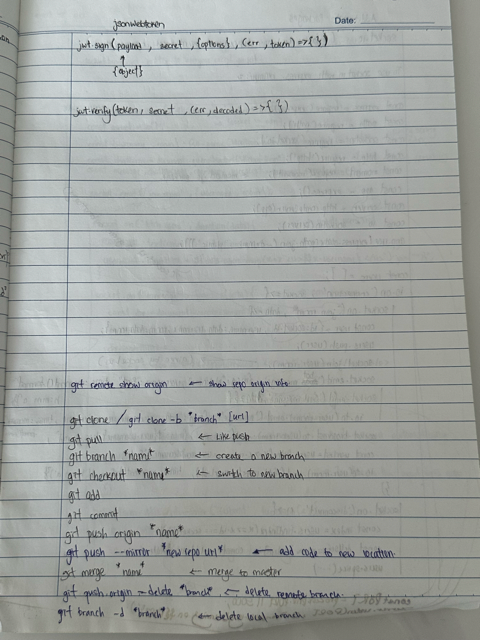 jsonwebtoken
Date:
jwt.sign(payload, secret, {options}, (err, token) => { })
↑
{object}
jwt.verify(token, secret, (err, decoded) => { })
git remote show origin ← show repo origin info
git clone / git clone -b *branch* [url]
git pull ← like push
git branch *name* ← create a new branch
git checkout *name* ← switch to new branch
git add
git commit
git push origin *name*
git push --mirror *new repo url* ← add code to new location
git merge *name* ← merge to master
git push origin --delete *branch* ← delete remote branch
git branch -d *branch* ← delete local branch